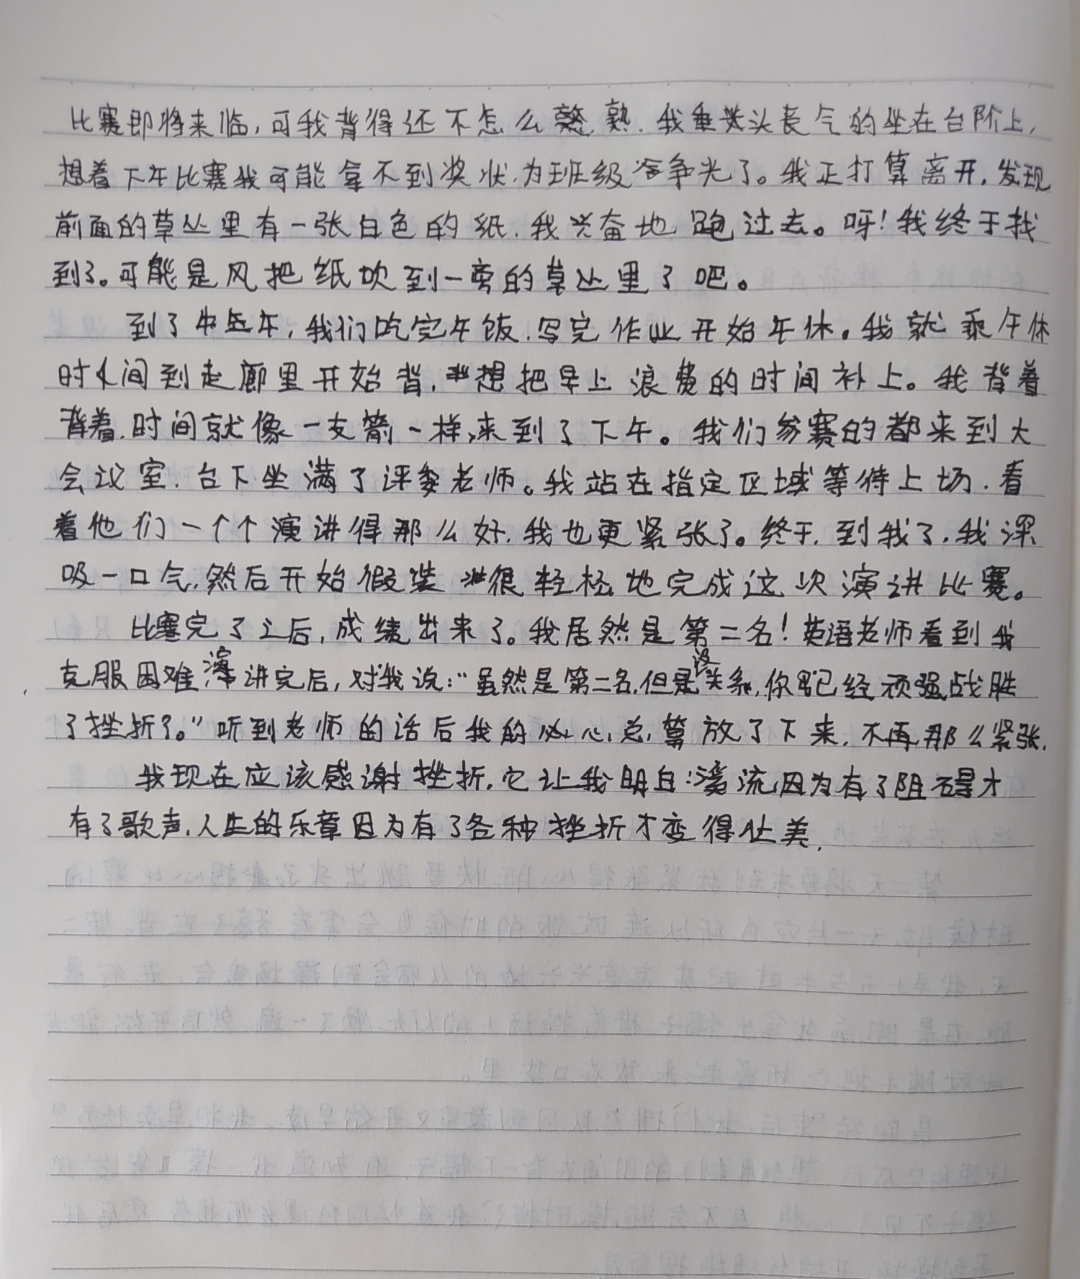 比赛即将来临,可我背得还不怎么熟,我垂头丧气的坐在台阶上,
想着下午比赛我可能拿不到奖状,为班级争光了。我正打算离开,发现
前面的草丛里有一张白色的纸,我兴奋地跑过去。呀!我终于找
到了。可能是风把纸吹到一旁的草丛里了吧。
到了中午,我们吃完午饭,写完作业开始午休。我就乘午休
时间到走廊里开始背,想把早上浪费的时间补上。我背着
背着,时间就像一支箭一样,来到了下午。我们参赛的都来到大
会议室,台下坐满了评委老师。我站在指定区域等待上场,看
着他们一个个演讲得那么好,我也更紧张了。终于,到我了,我深
吸一口气,然后开始假装很轻松地完成这次演讲比赛。
比赛完了之后,成绩出来了。我居然是第二名!英语老师看到我
克服困难演讲完后,对我说:“虽然是第二名,但是没关系,你已经顽强战胜
了挫折了。”听到老师的话后我的心,总算放了下来,不再那么紧张,
我现在应该感谢挫折,它让我明白:溪流因为有了阻碍才
有了歌声,人生的乐章因为有了各种挫折才变得壮美,